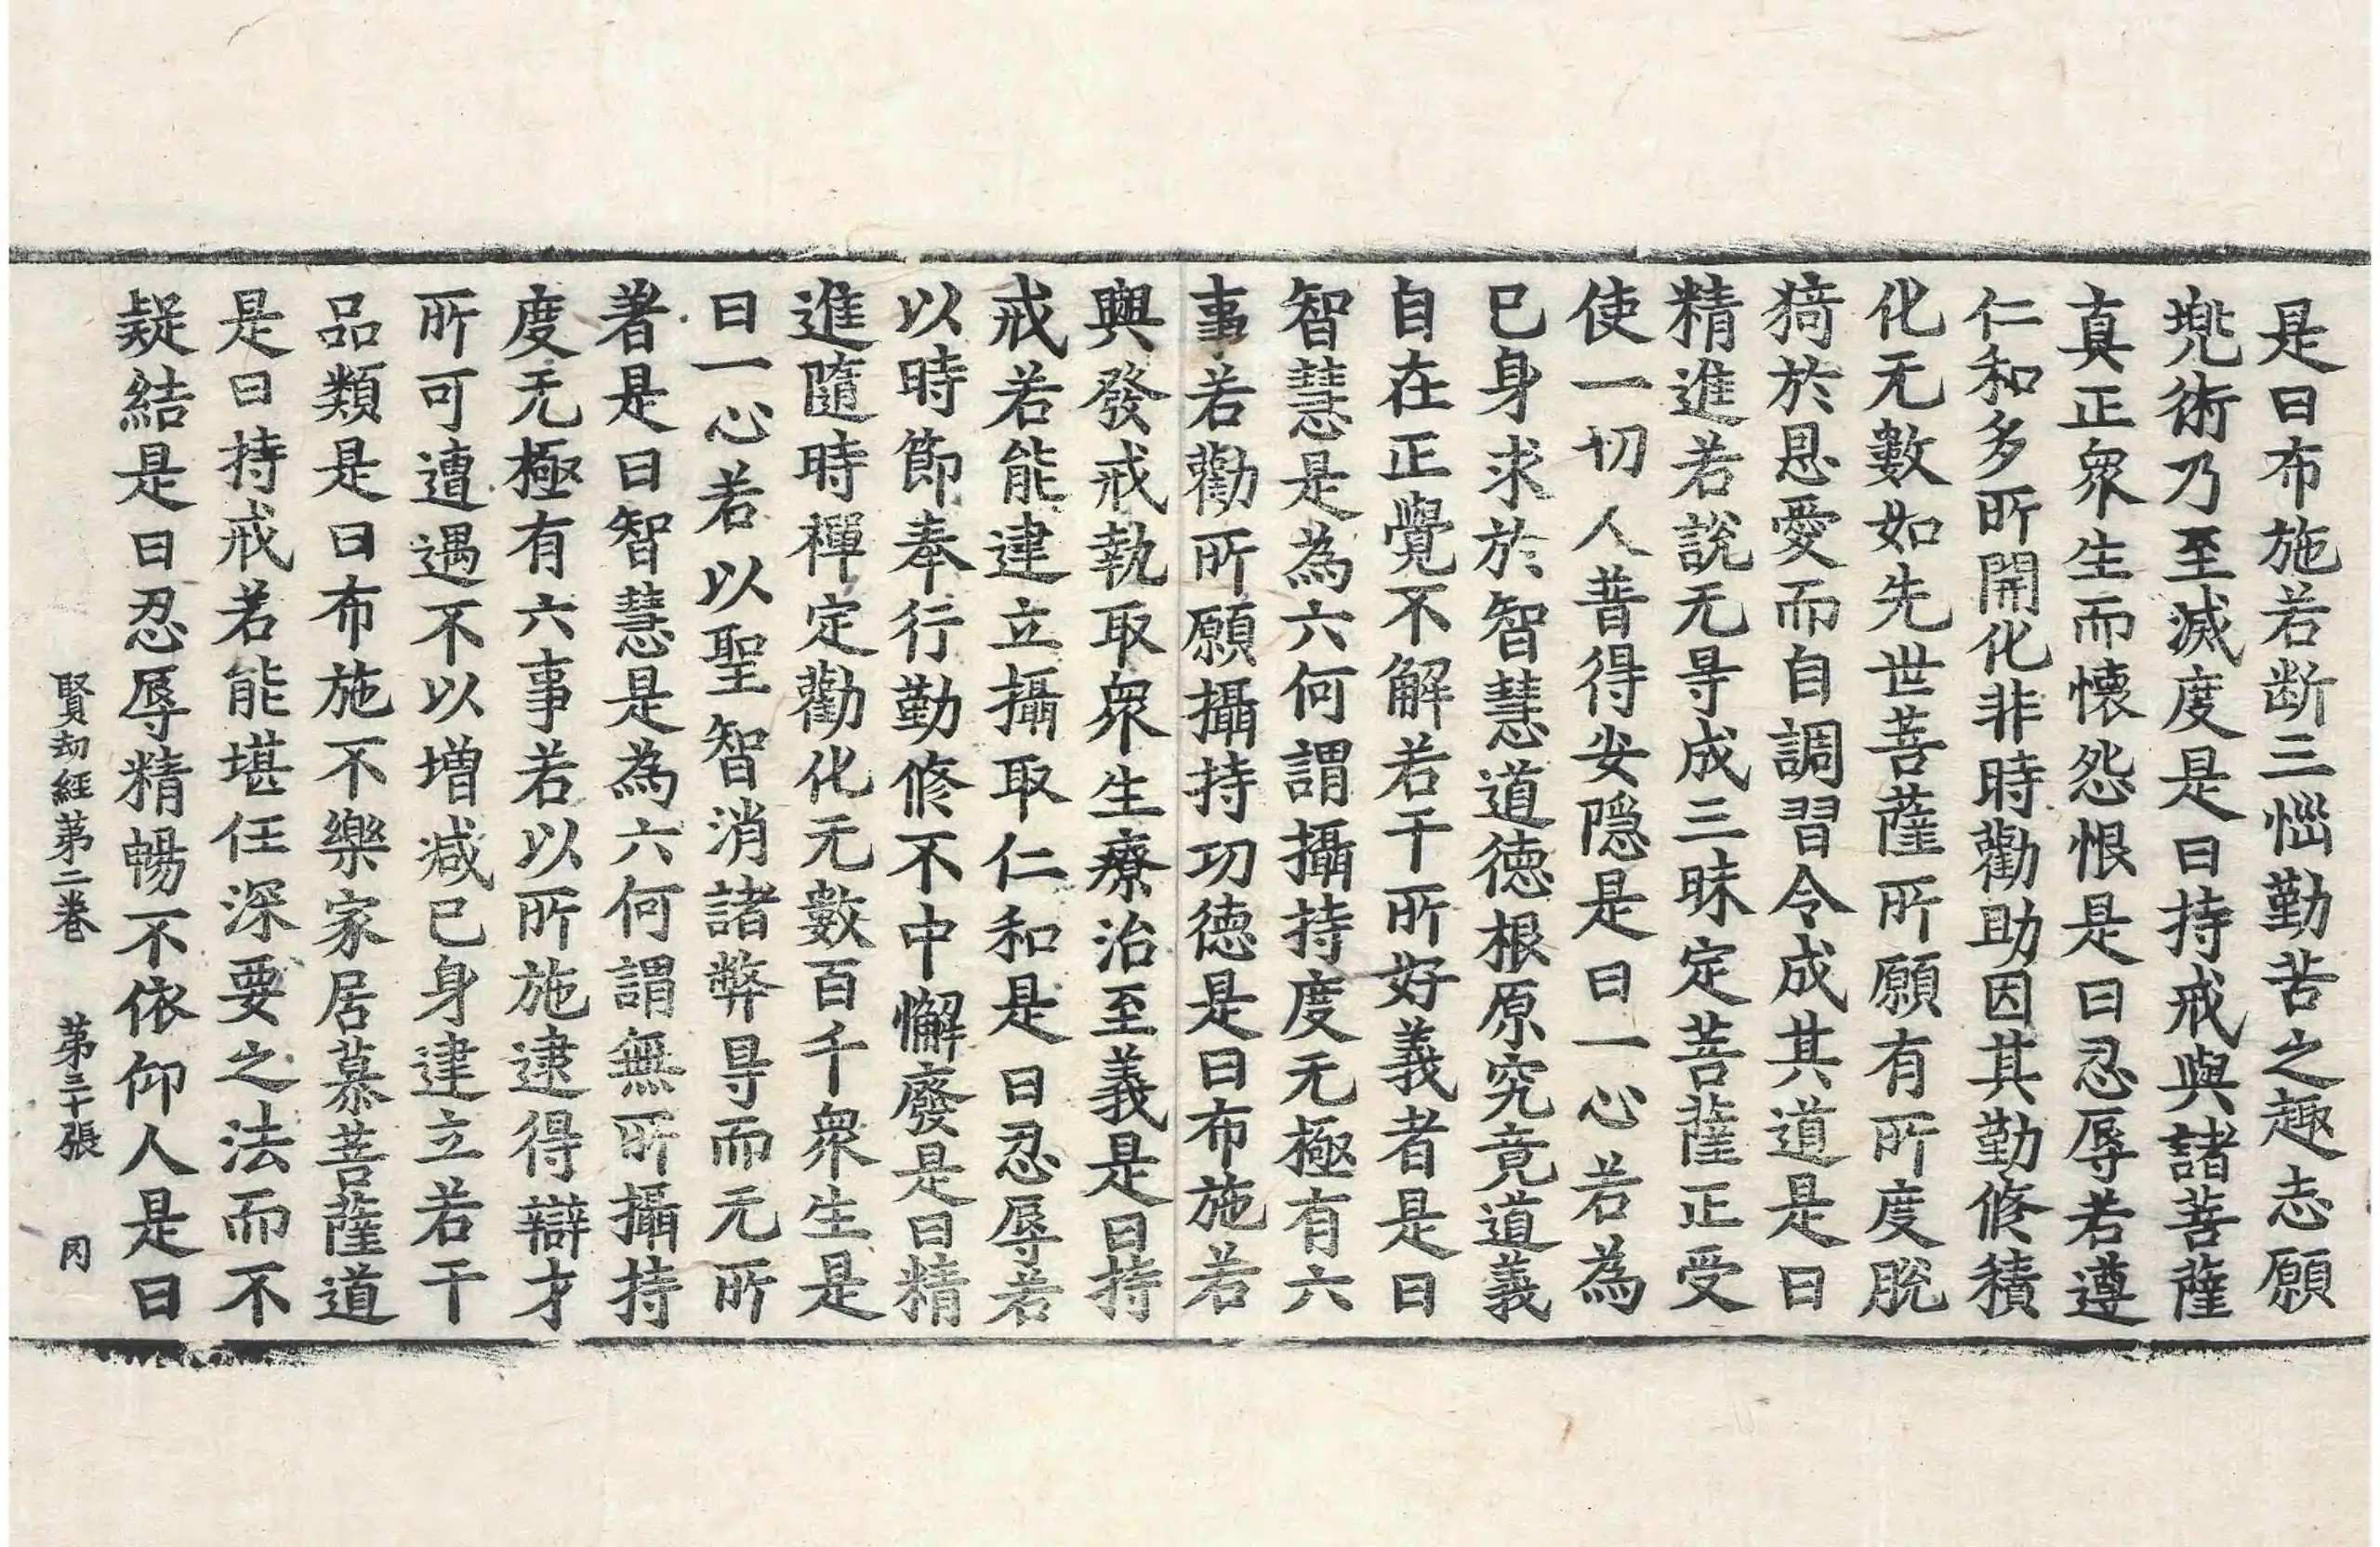 是曰布施若断三惱勤苦之趣志願
兠術乃至滅度是曰持戒與諸菩薩
真正衆生而懷怨恨是曰忍辱若遵
仁和多所開化非時勸助因其勤修積
化无數如先世菩薩所願有所度脫
猗於恩愛而自調習令成其道是曰
精進若說无㝵成三昧定菩薩正受
使一切人昔得安隱是曰一心若為
已身求於智慧道德根原究竟道義
自在正覺不解若干所好義者是曰
智慧是為六何謂攝持度无極有六
事若勸所願攝持功德是曰布施若
興發戒執取衆生療治至義是曰持
戒若能建立攝取仁和是曰忍辱若
以時節奉行勤修不中懈廢是曰精
進隨時禪定勸化无數百千衆生是
曰一心若以聖智消諸弊㝵而无所
著是曰智慧是為六何謂無所攝持
度无極有六事若以所施逮得辯才
所可遭遇不以增減已身建立若干
品類是曰布施不樂家居慕菩薩道
是曰持戒若能堪任深要之法而不
疑結是曰忍辱精暢不依仰人是曰
賢劫經第二卷　第三十張